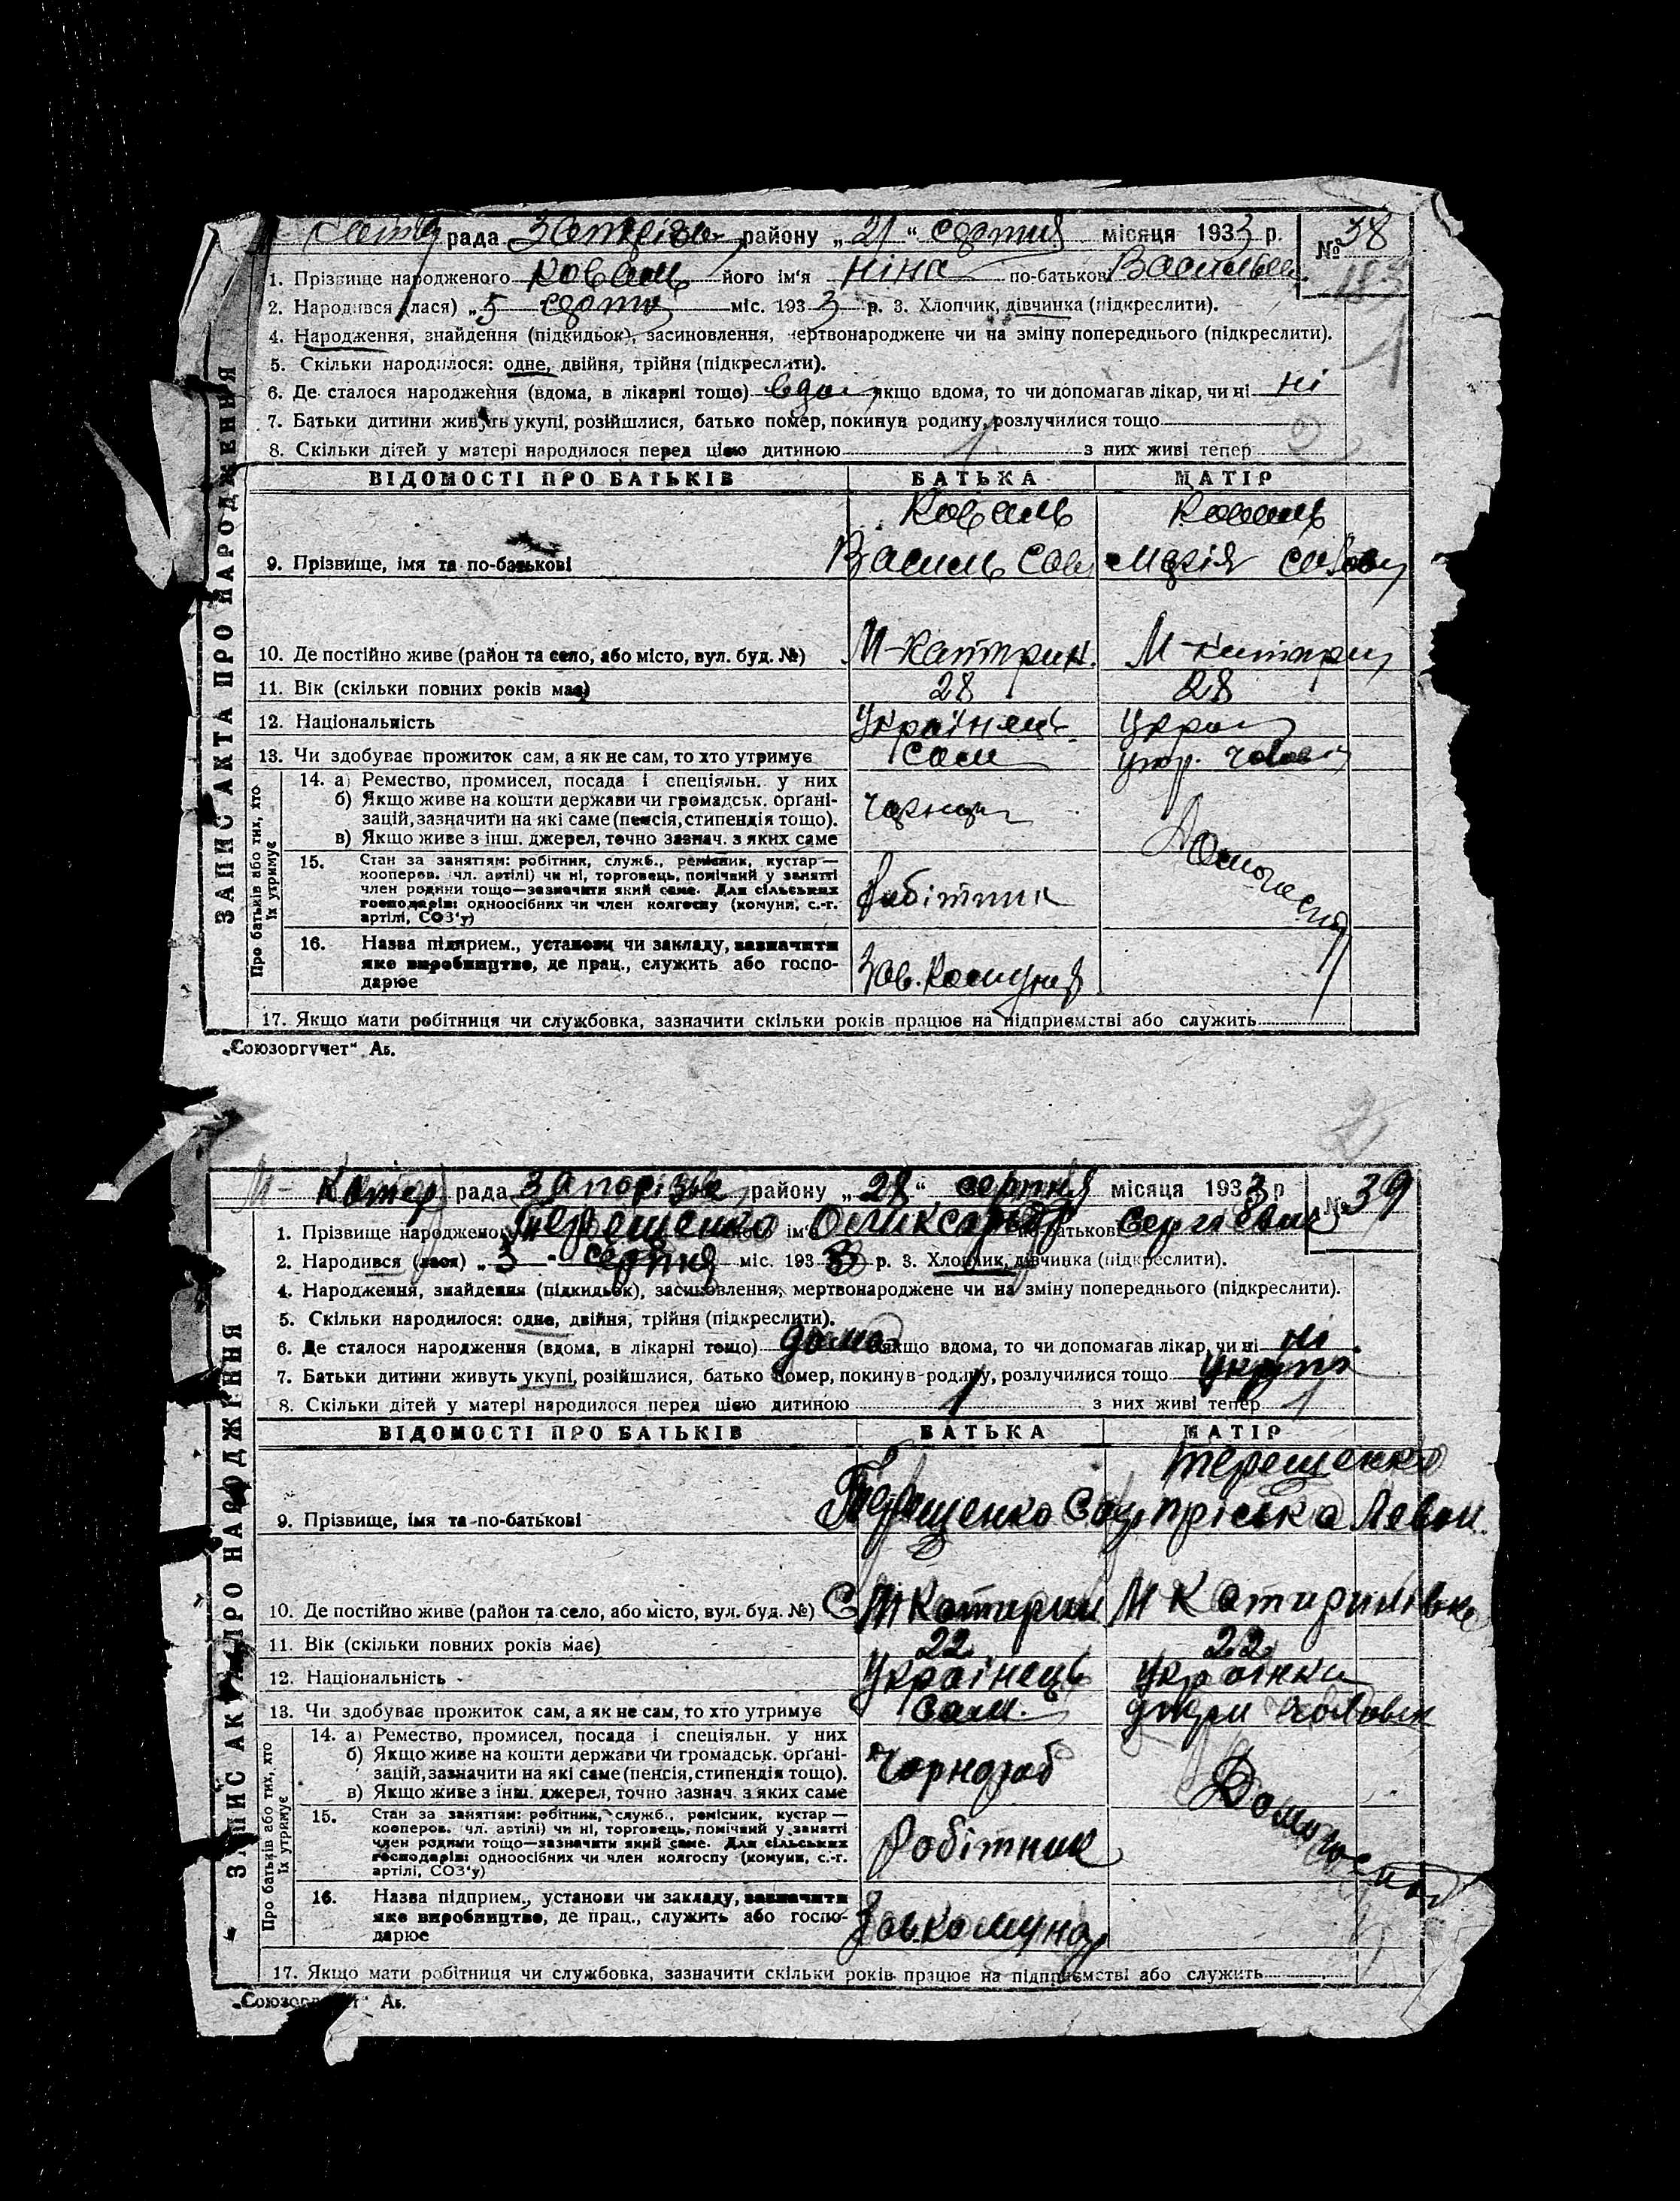 рада Запорізьк району „21“ серпня місяця 1933 р. № 38
1. Прізвище народженого Коваль його ім'я Ніна по-батькові Васильев
2. Народився (лася) „5 серпня міс. 1933 р. 3. Хлопчик, дівчинка (підкреслити).
4. Народження, знайдення (підкидьок), засиновлення, мертвонароджене чи на зміну попереднього (підкреслити).
5. Скільки народилося: одне, двійня, трійня (підкреслити).
6. Де сталося народження (вдома, в лікарні тощо) вдома якщо вдома, то чи допомагав лікар, чи ні ні
7. Батьки дитини живуть укупі, розійшлися, батько помер, покинув родину, розлучилися тощо
8. Скільки дітей у матері народилося перед цією дитиною 1 з них живі тепер
ВІДОМОСТІ ПРО БАТЬКІВ БАТЬКА МАТІР
Коваль Коваль
9. Прізвище, імя та по-батькові Василь Сав Марія Савов
10. Де постійно живе (район та село, або місто, вул. буд. №) М-Катерин. М-Катери
11. Вік (скільки повних років має) 28 28
12. Національність Українець Укра
13. Чи здобуває прожиток сам, а як не сам, то хто утримує Сам утр. чолов
14. а) Ремество, промисел, посада і спеціяльн. у них
б) Якщо живе на кошти держави чи громадськ. органі-
зацій, зазначити на які саме (пенсія, стипендія тощо).
в) Якщо живе з інш. джерел, точно зазнач. з яких саме
Домогосп
15. Стан за заняттям: робітник, служб., ремісник, кустар—
кооперов. (чл. артілі) чи ні, торговець, помічний у занятті
член родини тощо—зазначити який саме. Для сільських
господарів: одноосібних чи член колгоспу (комуни, с.-г.
артілі, СОЗ'у)
Робітник
16. Назва підприєм., установи чи закладу, зазначити
яке виробництво, де прац., служить або госпо-
дарює
Зав. Комунар
17. Якщо мати робітниця чи службовка, зазначити скільки років працює на підприємстві або служить
Про батьків або тих, хто їх утримує
ЗАПИС АКТА ПРО НАРОДЖЕННЯ
„Союзоргучет“ Ав.
М- Катер рада Запорізьке району „28“ серпня місяця 1933 р № 39
1. Прізвище народженого Терещенко ім'я Олександр по-батькові Сергієвич
2. Народився (лася) „3 - серпня міс. 1933 р. 3. Хлопчик, дівчинка (підкреслити).
4. Народження, знайдення (підкидьок), засиновлення, мертвонароджене чи на зміну попереднього (підкреслити).
5. Скільки народилося: одне, двійня, трійня (підкреслити).
6. Де сталося народження (вдома, в лікарні тощо) дома якщо вдома, то чи допомагав лікар, чи ні ні
7. Батьки дитини живуть укупі, розійшлися, батько помер, покинув родину, розлучилися тощо укупі
8. Скільки дітей у матері народилося перед цією дитиною 1 з них живі тепер 1
ВІДОМОСТІ ПРО БАТЬКІВ БАТЬКА МАТІР
Терещенко
9. Прізвище, імя та по-батькові Терещенко Пріська Левон.
10. Де постійно живе (район та село, або місто, вул. буд. №) С М Катерин М Катеринівка
11. Вік (скільки повних років має) 22 22
12. Національність Українець Українка
13. Чи здобуває прожиток сам, а як не сам, то хто утримує Сам. утри чоловік
14. а) Ремество, промисел, посада і спеціяльн. у них
б) Якщо живе на кошти держави чи громадськ. органі-
зацій, зазначити на які саме (пенсія, стипендія тощо).
в) Якщо живе з інш. джерел, точно зазнач. з яких саме
Чорнороб Домогоспод
15. Стан за заняттям: робітник, служб., ремісник, кустар—
кооперов. (чл. артілі) чи ні, торговець, помічний у занятті
член родини тощо—зазначити який саме. Для сільських
господарів: одноосібних чи член колгоспу (комуни, с.-г.
артілі, СОЗ'у)
Робітник
16. Назва підприєм., установи чи закладу, зазначити
яке виробництво, де прац., служить або госпо-
дарює
Зав.комунар
17. Якщо мати робітниця чи службовка, зазначити скільки років працює на підприємстві або служить
Про батьків або тих, хто їх утримує
ЗАПИС АКТА ПРО НАРОДЖЕННЯ
„Союзоргучет“ Ав.